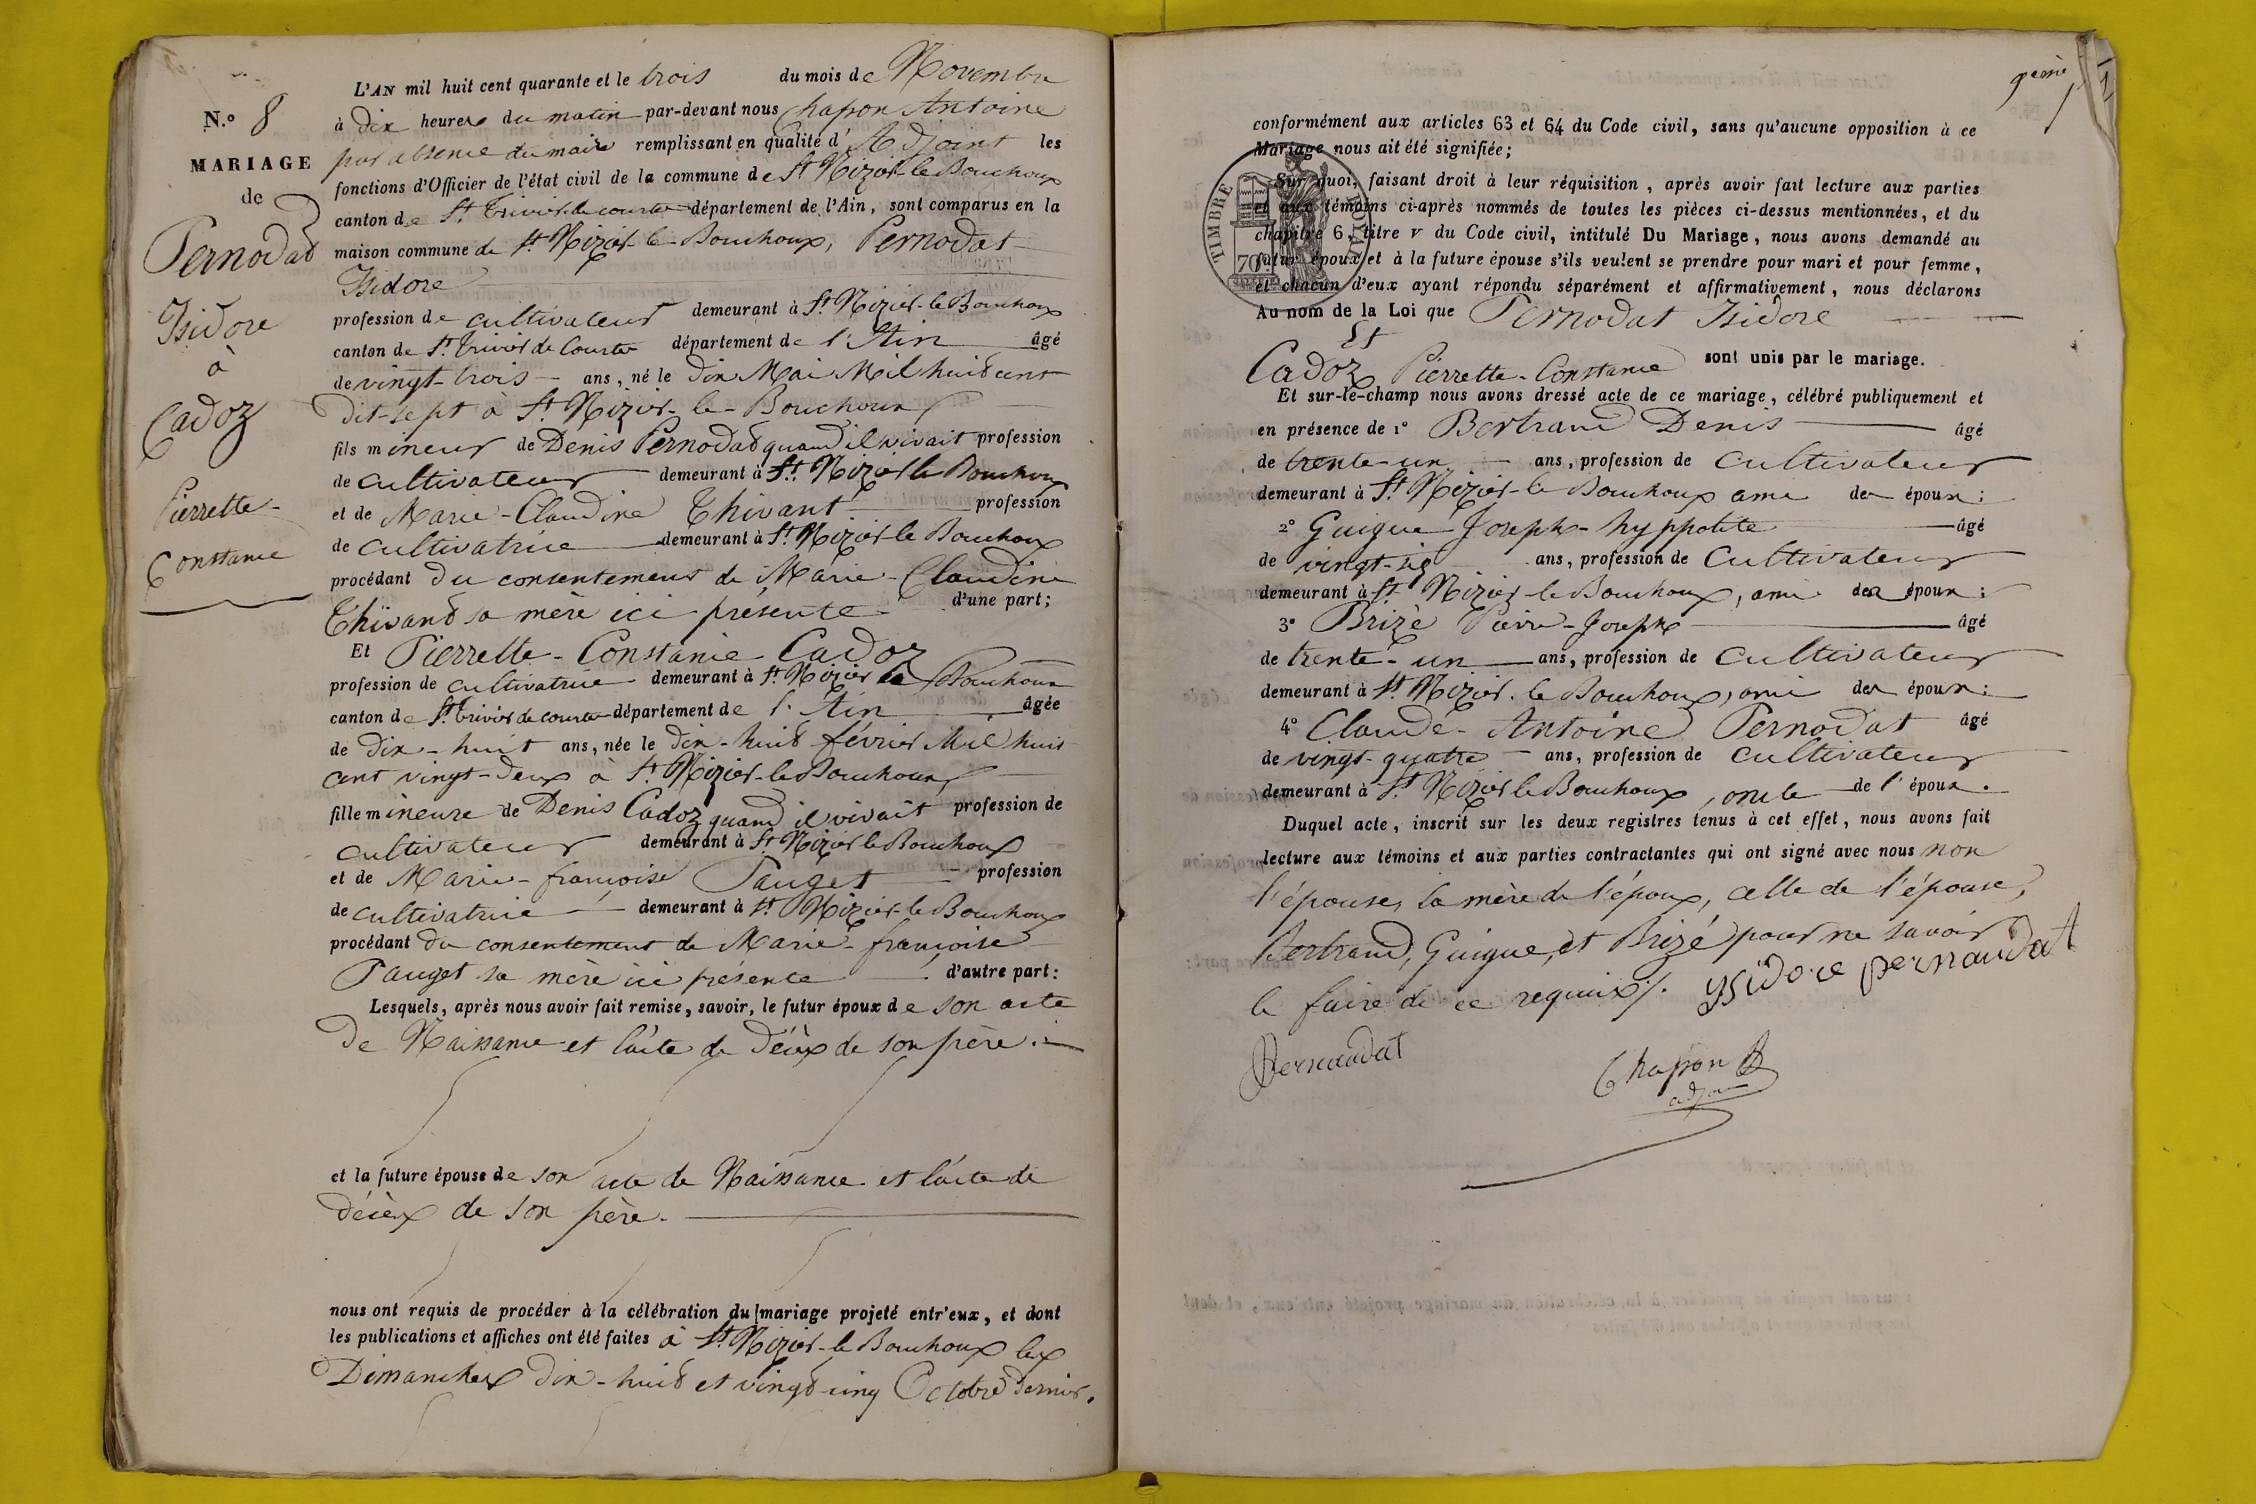 N.o 8
MARIAGE
de
Pernodat
Isidore
à
Cadoz
Pierrette-
Constance
L'AN mil huit cent quarante et le trois du mois de Novembre
à dix heures du matin par-devant nous Chapon Antoine
par absence du maire remplissant en qualité d'Adjoint les
fonctions d'Officier de l'état civil de la commune de St Nizier-le-Bouchoux
canton de St Trivier de courtes département de l'Ain, sont comparus en la
maison commune de St Nizier-le-Bouchoux, Pernodat
Isidore
profession de cultivateur demeurant à St Nizier-le-Bouchoux
canton de St Trivier de Courtes département de l'Ain âgé
de vingt-trois ans, né le dix Mai Mil huit cent
dit-sept à St Nizier-le-Bouchoux
fils mineur de Denis Pernodat quand il vivait profession
de cultivateur demeurant à St Nizier le Bouchoux
et de Marie-Claudine Thivant profession
de cultivatrice demeurant à St Nizier le Bouchoux
procédant du consentement de Marie-Claudine
Thivand sa mère ici présente d'une part;
Et Pierrette-Constance Cadoz
profession de cultivatrice demeurant à St Nizier le Bouchoux
canton de St Trivier de courtes département de l'Ain âgée
de dix-huit ans, née le dix-huit février Mil huit
cent vingt-deux à St Nizier-le-Bouchoux
fille mineure de Denis Cadoz quand il vivait profession de
cultivateur demeurant à St Nizier le Bouchoux
et de Marie-françoise Pauget profession
de cultivatrice demeurant à St Nizier-le-Bouchoux
procédant du consentement de Marie-françoise
Pauget sa mère ici présente d'autre part:
Lesquels, après nous avoir fait remise, savoir, le futur époux de son acte
de Naissance et l'acte de décès de son père.
et la future épouse de son acte de Naissance et l'acte de
décès de son père.
nous ont requis de procéder à la célébration du mariage projeté entr'eux, et dont
les publications et affiches ont été faites à St Nizier-le-Bouchoux les
Dimanches dix-huit et vingt-cinq Octobre dernier.
conformément aux articles 63 et 64 du Code civil, sans qu'aucune opposition à ce
Mariage nous ait été signifiée;
Sur quoi, faisant droit à leur réquisition, après avoir fait lecture aux parties
et aux témoins ci-après nommés de toutes les pièces ci-dessus mentionnées, et du
chapitre 6, titre v du Code civil, intitulé Du Mariage, nous avons demandé au
futur époux et à la future épouse s'ils veulent se prendre pour mari et pour femme,
et chacun d'eux ayant répondu séparément et affirmativement, nous déclarons
Au nom de la Loi que Pernodat Isidore
Et
Cadoz Pierrette-Constance sont unis par le mariage.
Et sur-le-champ nous avons dressé acte de ce mariage, célébré publiquement et
en présence de 1o Bertrand Denis âgé
de trente-un ans, profession de cultivateur
demeurant à St Nizier-le-Bouchoux ami des époux;
2o Guigue Joseph-hyppolite âgé
de vingt-six ans, profession de Cultivateur
demeurant à St Nizier-le-Bouchoux, ami des époux;
3o Brizé Pierre-Joseph âgé
de trente-un ans, profession de cultivateur
demeurant à St Nizier-le-Bouchoux, ami des époux;
4o Claude-Antoine Pernodat âgé
de vingt-quatre ans, profession de cultivateur
demeurant à St Nizier le Bouchoux, oncle de l'époux.
Duquel acte, inscrit sur les deux registres tenus à cet effet, nous avons fait
lecture aux témoins et aux parties contractantes qui ont signé avec nous non
l'épouse, la mère de l'époux, celle de l'épouse,
Bertrand, Guigue, et Brizé pour ne savoir
le faire de ce requis /. Ysidore pernaudat
Pernaudat
Chapon A
adjoint
TIMBRE ROYAL
70